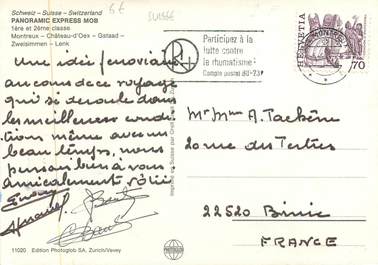 6€
SUISSE
Schweiz - Suisse - Switzerland
PANORAMIC EXPRESS MOB
1ère et 2ème classe
Montreux - Château-d'Oex - Gstaad -
Zweisimmen - Lenk
Participez à la
lutte contre
le rhumatisme:
Compte postal 80-237
HELVETIA
70
Une idée ferroviaire
au cours de ce voyage
qui se déroule dans
les meilleures condi
tions même avec un
beau temps, nous
pensons bien à vous
amicalement
Mr Mme A.
20 rue des Tertres
22520 Binic
FRANCE
11020 Edition Photoglob SA, Zürich/Vevey